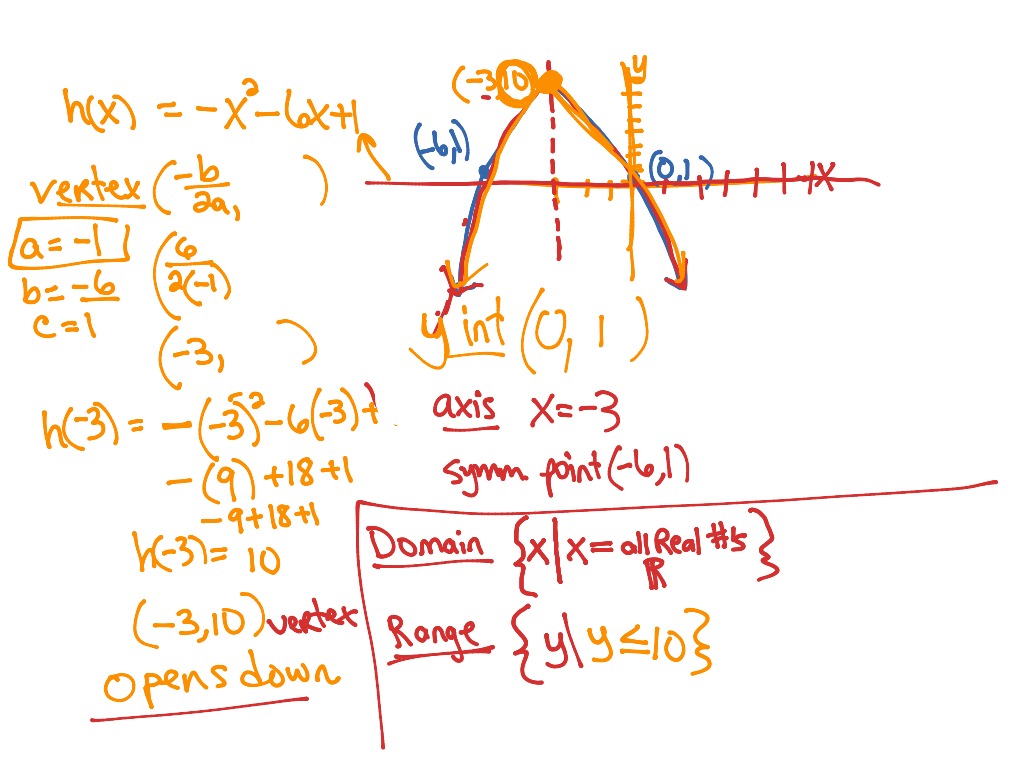 h(x) = -x² - 6x + 1
vertex (-b/2a, )
a = -1
b = -6
c = 1
(6/2(-1)
(-3, )
h(-3) = -(-3)² - 6(-3) +
-(9) + 18 + 1
-9 + 18 + 1
h(-3) = 10
(-3, 10) vertex
opens down
(-3 10)
y
(-6, 1)
(0, 1)
x
y int (0, 1)
axis x = -3
symm. point (-6, 1)
Domain {x | x = all Real #'s}
ℝ
Range {y | y ≤ 10}